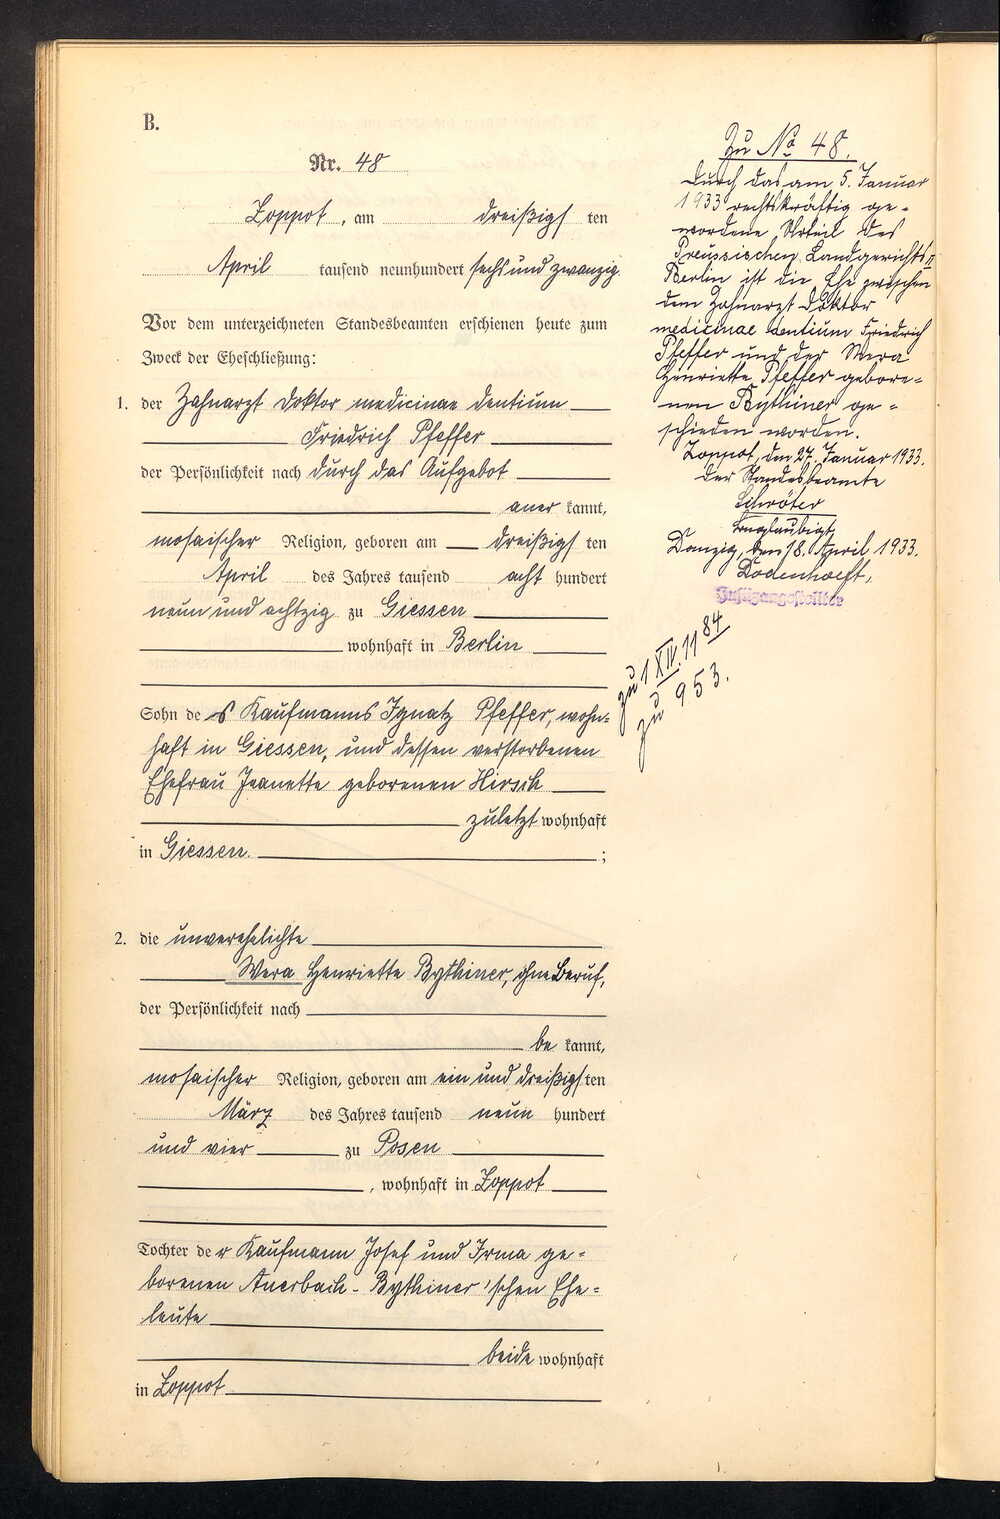 B.
Nr. 48
Zoppot, am dreißigsten
April tausend neunhundert sechs und zwanzig
Vor dem unterzeichneten Standesbeamten erschienen heute zum
Zweck der Eheschließung:
1. der Zahnarzt Doktor medicinae dentium
Friedrich Pfeffer
der Persönlichkeit nach durch das Aufgebot
anerkannt,
mosaischer Religion, geboren am dreißigsten
April des Jahres tausend acht hundert
neun und achtzig zu Giessen
wohnhaft in Berlin
Sohn des Kaufmanns Ignatz Pfeffer, wohn=
haft in Giessen, und dessen verstorbenen
Ehefrau Jeanette geborenen Hirsch
zuletzt wohnhaft
in Giessen. ;
2. die unverehelichte
Wera Henriette Bythiner, ohne Beruf,
der Persönlichkeit nach
bekannt,
mosaischer Religion, geboren am ein und dreißigsten
März des Jahres tausend neun hundert
und vier zu Posen
, wohnhaft in Zoppot
Tochter der Kaufmann Josef und Irma ge=
borenen Auerbach-Bythiner'schen Ehe=
leute
beide wohnhaft
in Zoppot
Zu No 48.
Durch das am 5. Januar
1933 rechtskräftig ge=
wordene Urteil des
Preussischen Landgerichts II
Berlin ist die Ehe zwischen
dem Zahnarzt Doktor
medicinae dentium Friedrich
Pfeffer und der Wera
Henriette Pfeffer gebore=
nen Bythiner ge=
schieden worden.
Zoppot, den 27. Januar 1933.
Der Standesbeamte
Schröter
Beglaubigt
Danzig, den 18. April 1933.
Bodenhoeft,
Justizangestellter
zu 1 XIV. 11 84
zu 953.